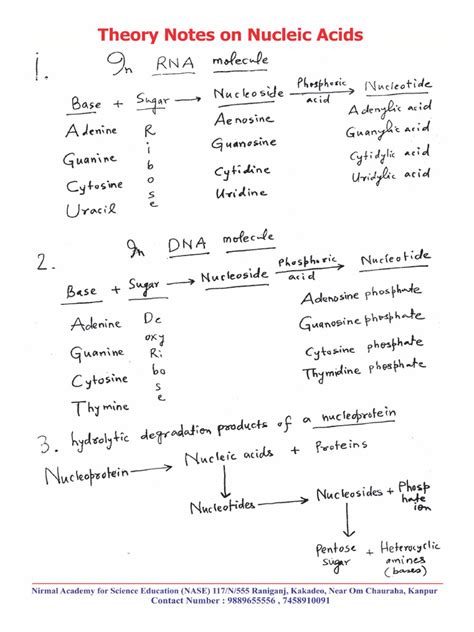 Theory Notes on Nucleic Acids
1. In RNA molecule
Base + Sugar → Nucleoside Phosphoric acid → Nucleotide
Adenine R Aenosine Adenylic acid
Guanine i Guanosine Guanylic acid
Cytosine b o Cytidine Cytidylic acid
Uracil s e Uridine Uridylic acid
2. In DNA molecule
Base + Sugar → Nucleoside Phosphoric acid → Nucleotide
Adenine De Adenosine phosphate
oxy
Guanine Ri Guanosine phosphate
Cytosine bo Cytosine phosphate
s
Thymine e Thymidine phosphate
3. hydrolytic degradation products of a nucleoprotein
Nucleoprotein → Nucleic acids + Proteins
Nucleotides → Nucleosides + Phosphate ion
Pentose sugar + Heterocyclic amines (bases)
Nirmal Academy for Science Education (NASE) 117/N/555 Raniganj, Kakadeo, Near Om Chauraha, Kanpur
Contact Number : 9889655556 , 7458910091